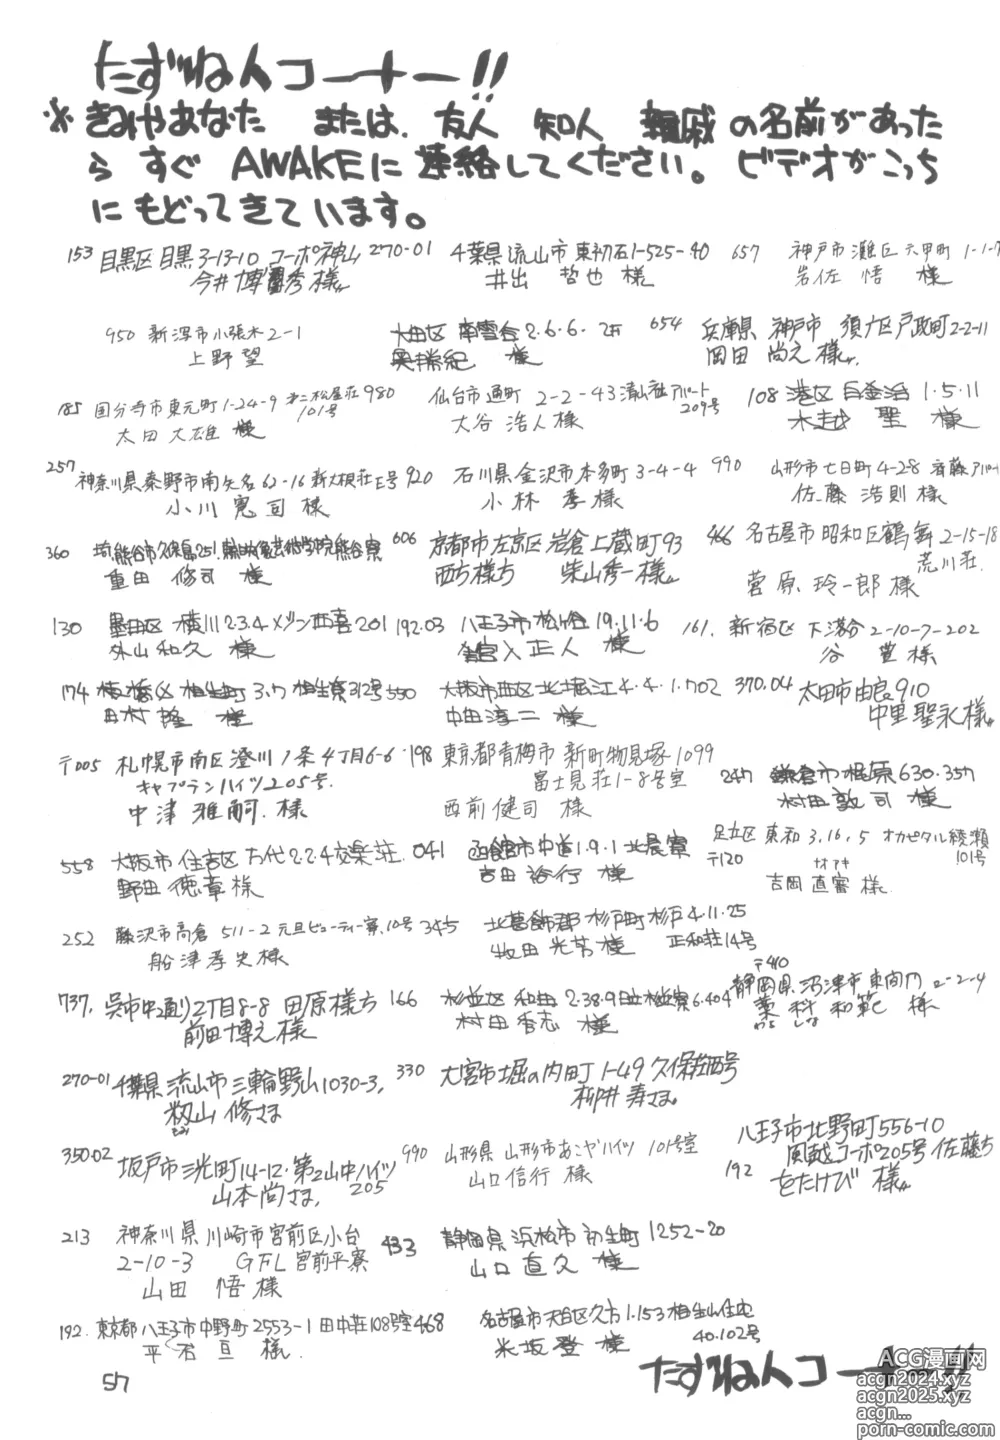 たずね人コーナー!!
※きみやあなた または、友人 知人 親戚の名前があった
ら すぐ AWAKEに連絡してください。 ビデオがこっち
にもどってきています。
153 目黒区目黒3-13-10 コーポ神山
今井博秀様
270-01 千葉県流山市東初石1-525-40
井出 哲也 様
657 神戸市灘区六甲町1-1-7
岩佐 悟 様
950 新潟市小張木2-1
上野望
大田区 南雪谷2.6.6.
奥 様
654 兵庫県 神戸市 須磨区戸政町2-2-11
岡田 尚之様
185 国分寺市東元町1-24-9 第二松屋荘
101号
太田 大雄 様
980 仙台市通町 2-2-43 清山荘アパート
209号
大谷 浩人様
108 港区 白金台 1.5.11
木越 聖 様
257 神奈川県秦野市南矢名62-16 新大根荘E号
小川 寛司 様
920 石川県金沢市本多町3-4-4
小林 孝様
990 山形市七日町4-28 斉藤アパート
佐藤 浩則 様
360 熊谷市久保島251
重田 修司 様
606 京都市左京区岩倉上蔵町93
西方様方 柴山秀一様
466 名古屋市昭和区鶴舞2-15-18
荒川荘
菅原玲一郎様
130 墨田区 横川2.3.4メゾン西喜201
外山和久 様
192.03 八王子市松が谷19.11.6
正人 様
161. 新宿区下落合2-10-7-202
谷 豊様
174 板橋区 相生町3.7 相生寮312号
田村 隆 様
550 大阪市西区北堀江4.4.1.702
中田淳二 様
370.04 太田市由良910
中里聖永様
〒005 札幌市南区澄川1条4丁目6-6
キャプランハイツ205号.
中津 雅嗣.様
198 東京都青梅市新町物見塚1099
富士見荘1-8号室
西前健司 様
247 鎌倉市梶原630.357
村田敦司 様
558 大阪市住吉区万代2.2.4交楽荘.
野田徳章様
041 函館市中道1.9.1北晨寮
吉田裕行 様
〒120 足立区東和3.16.5 オカピタル綾瀬
101号
ナオアキ
吉岡直審様.
252 藤沢市高倉511-2元旦ビューティー寮.10号
船津孝史様
345 北葛飾郡杉戸町杉戸4.11.25
正和荘14号
牧田光芳様
〒410
静岡県沼津市東間門2-2-4
藁科和範 様
わら しな
737. 呉市中通り2丁目8-8 田原様方
前田博之様
166 杉並区 和田2.38.9日立杉並寮6.404
村田香志 様
270-01 千葉県流山市三輪野山1030-3.
籾山 修さま
もみ
330 大宮市堀の内町1-49久保荘西号
柳井寿さま。
350-02 坂戸市三光町14-12.第2山中ハイツ
205
山本尚さま.
990 山形県山形市あこやハイツ101号室
山口信行様
192 八王子市北野町556-10
風越コーポ205号佐藤方
をたけび 様
213 神奈川県川崎市宮前区小台
2-10-3 GFL宮前平寮
山田 悟様
433 静岡県浜松市初生町1252-20
山口直久 様
192. 東京都八王子市中野町2553-1田中荘108号室
平君亘 様.
468 名古屋市天白区久方1.153相生山住宅
40.102号
米坂登 様
たずね人コーナー!!
57
ACG漫画网
acgn2024.xyz
acgn2025.xyz
acgn...
porn-comic.com